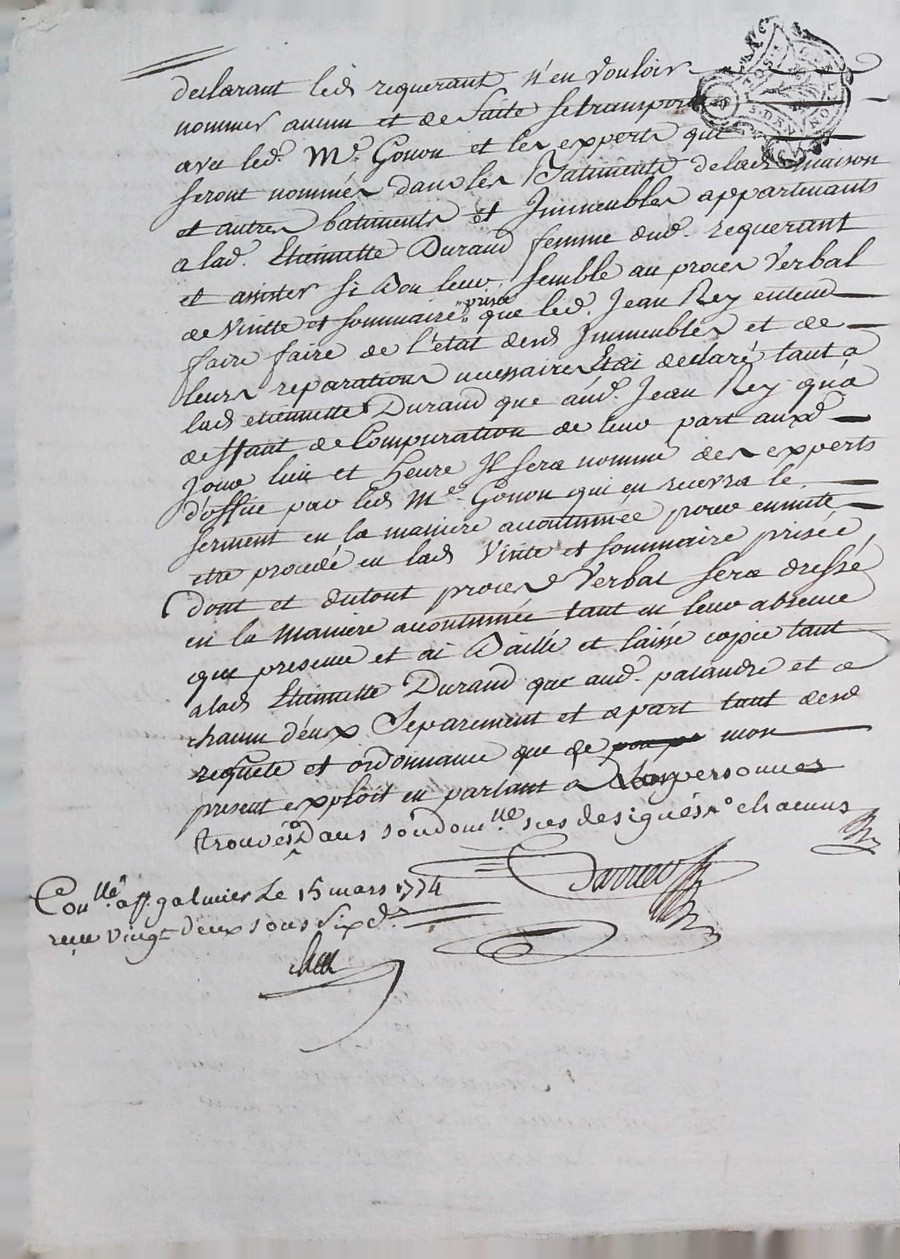 declarant led. requerant n'en vouloir
nommer aucun et de suite se transporter
avec led. Me. Gonon et les experts qui
seront nommés dans les Batiments de lad. maison
et autres batiments et Immeubles appartenants
a lad. Etiennette Durand femme dud. requerant
et assister si bon leur semble au proces verbal
de visitte et sommaire prisée que led. Jean Rey entend
faire faire de l'état desd. Immeubles et de
leurs reparations necessaires Etai declaré tant a
lad. etiennette Durand que aud. Jean Rey qu'a
deffaut de Comparution de leur part auxd.
jour lieu et heure Il sera nommé des experts
d'office par led. Me. Gonon qui en recevra le
serment en la maniere accoutumée pour ensuite
etre procedé en lad. visite et sommaire prisée,
Dont et dutout proces Verbal sera dressé
en la maniere accoutumée tant en leur absence
que presence et ai Baillé et laissé copie tant
a lad. Etiennette Durand que aud. palandre et a
chacun d'eux Séparement et apart tant desd.
requete et ordonnance que de mon
present exploit en parlant a leurs personnes
trouvés Dans son dom.lle sus designés chacuns
Con.llé a St. galmier Le 15 mars 1774
reçu vingt deux sous six d.